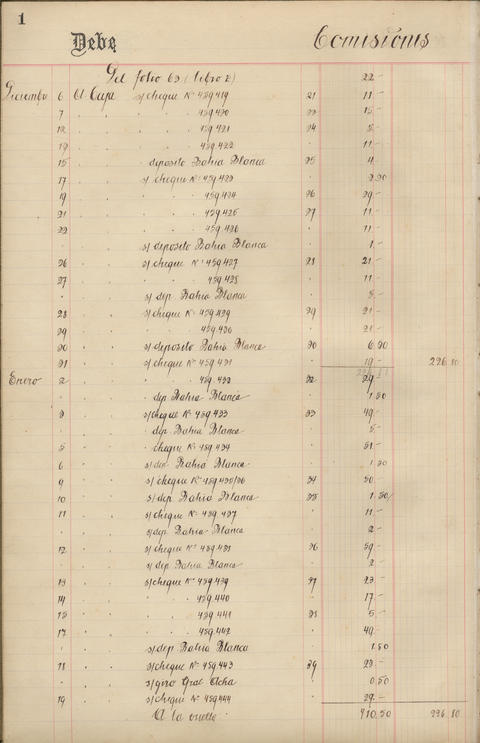 1
Debe Comisiones
Del folio 69 (libro 2) 22 -
Diciembre 6 A Caja s/ cheque Nº 459,419 21 11 -
7 " " " " 459,420 22 15 -
12 " " " " 459,421 24 5 -
" " " " 459,422 " 11 -
15 " " deposito Bahia Blanca 25 4 -
17 " " s/ cheque Nº 459,423 "
19 " " " " 459,424 26 29 -
21 " " " " 459,425 27 11 -
22 " " " " 459,426 " 11 -
" " " s/ deposito Bahia Blanca " 1 -
26 " " s/ cheque Nº 459,427 28 21 -
27 " " " " 459,428 " 11 -
" " " s/ dep Bahia Blanca " 5 -
28 " " s/ cheque Nº 459,429 29 21 -
29 " " " " 459,430 " 21 -
30 " " s/ deposito Bahia Blanca 30
31 " " s/ cheque Nº 459,431 " 19 - 226.80
Enero 2 " " " " 459,432 32 29 -
" " " dep Bahia Blanca " 1.50
3 " " s/ cheque Nº 459,433 33 49 -
" " " dep Bahia Blanca " 5 -
5 " " cheque Nº 459,434 " 51 -
6 " " s/ dep Bahia Blanca " 1.50
9 " " s/ cheque Nº 459,435/36 34 50 -
10 " " s/ dep Bahia Blanca 35 1.50
11 " " s/ cheque Nº 459,437 " 11 -
" " " s/ dep Bahia Blanca " 2 -
12 " " s/ cheque Nº 459,438 36 59 -
" " " s/ dep Bahia Blanca " 2 -
13 " " s/ cheque Nº 459,439 37 23 -
14 " " " " 459,440 " 17 -
15 " " " " 459,441 38 5 -
17 " " " " 459,442 " 49 -
" " " s/ dep Bahia Blanca 1.50
18 " " s/ cheque Nº 459,443 39 23 -
" " " s/ giro Gral Acha " 0.50
19 " " s/ cheque Nº 459,444 " 29 -
A la vuelta 410.50 226.80